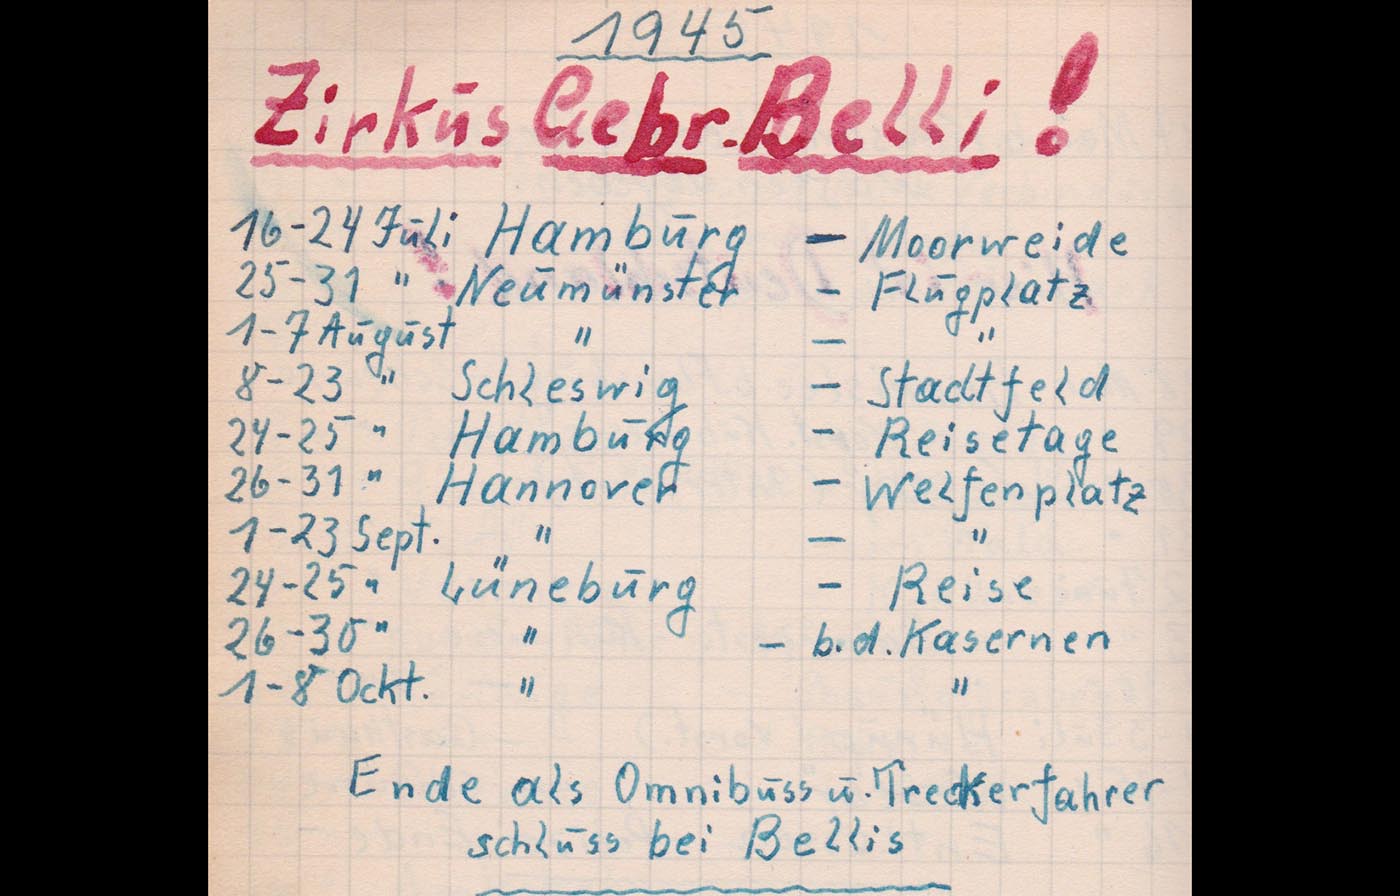 1945
Zirkus Gebr. Belli!
16-24 Juli Hamburg - Moorweide
25-31 " Neumünster - Flugplatz
1-7 August " - "
8-23 " Schleswig - Stadtfeld
24-25 " Hamburg - Reisetage
26-31 " Hannover - Welfenplatz
1-23 Sept. " - "
24-25 " Lüneburg - Reise
26-30 " " - b.d. Kasernen
1-8 Ockt. " "
Ende als Omnibuss u. Treckerfahrer
schluss bei Bellis